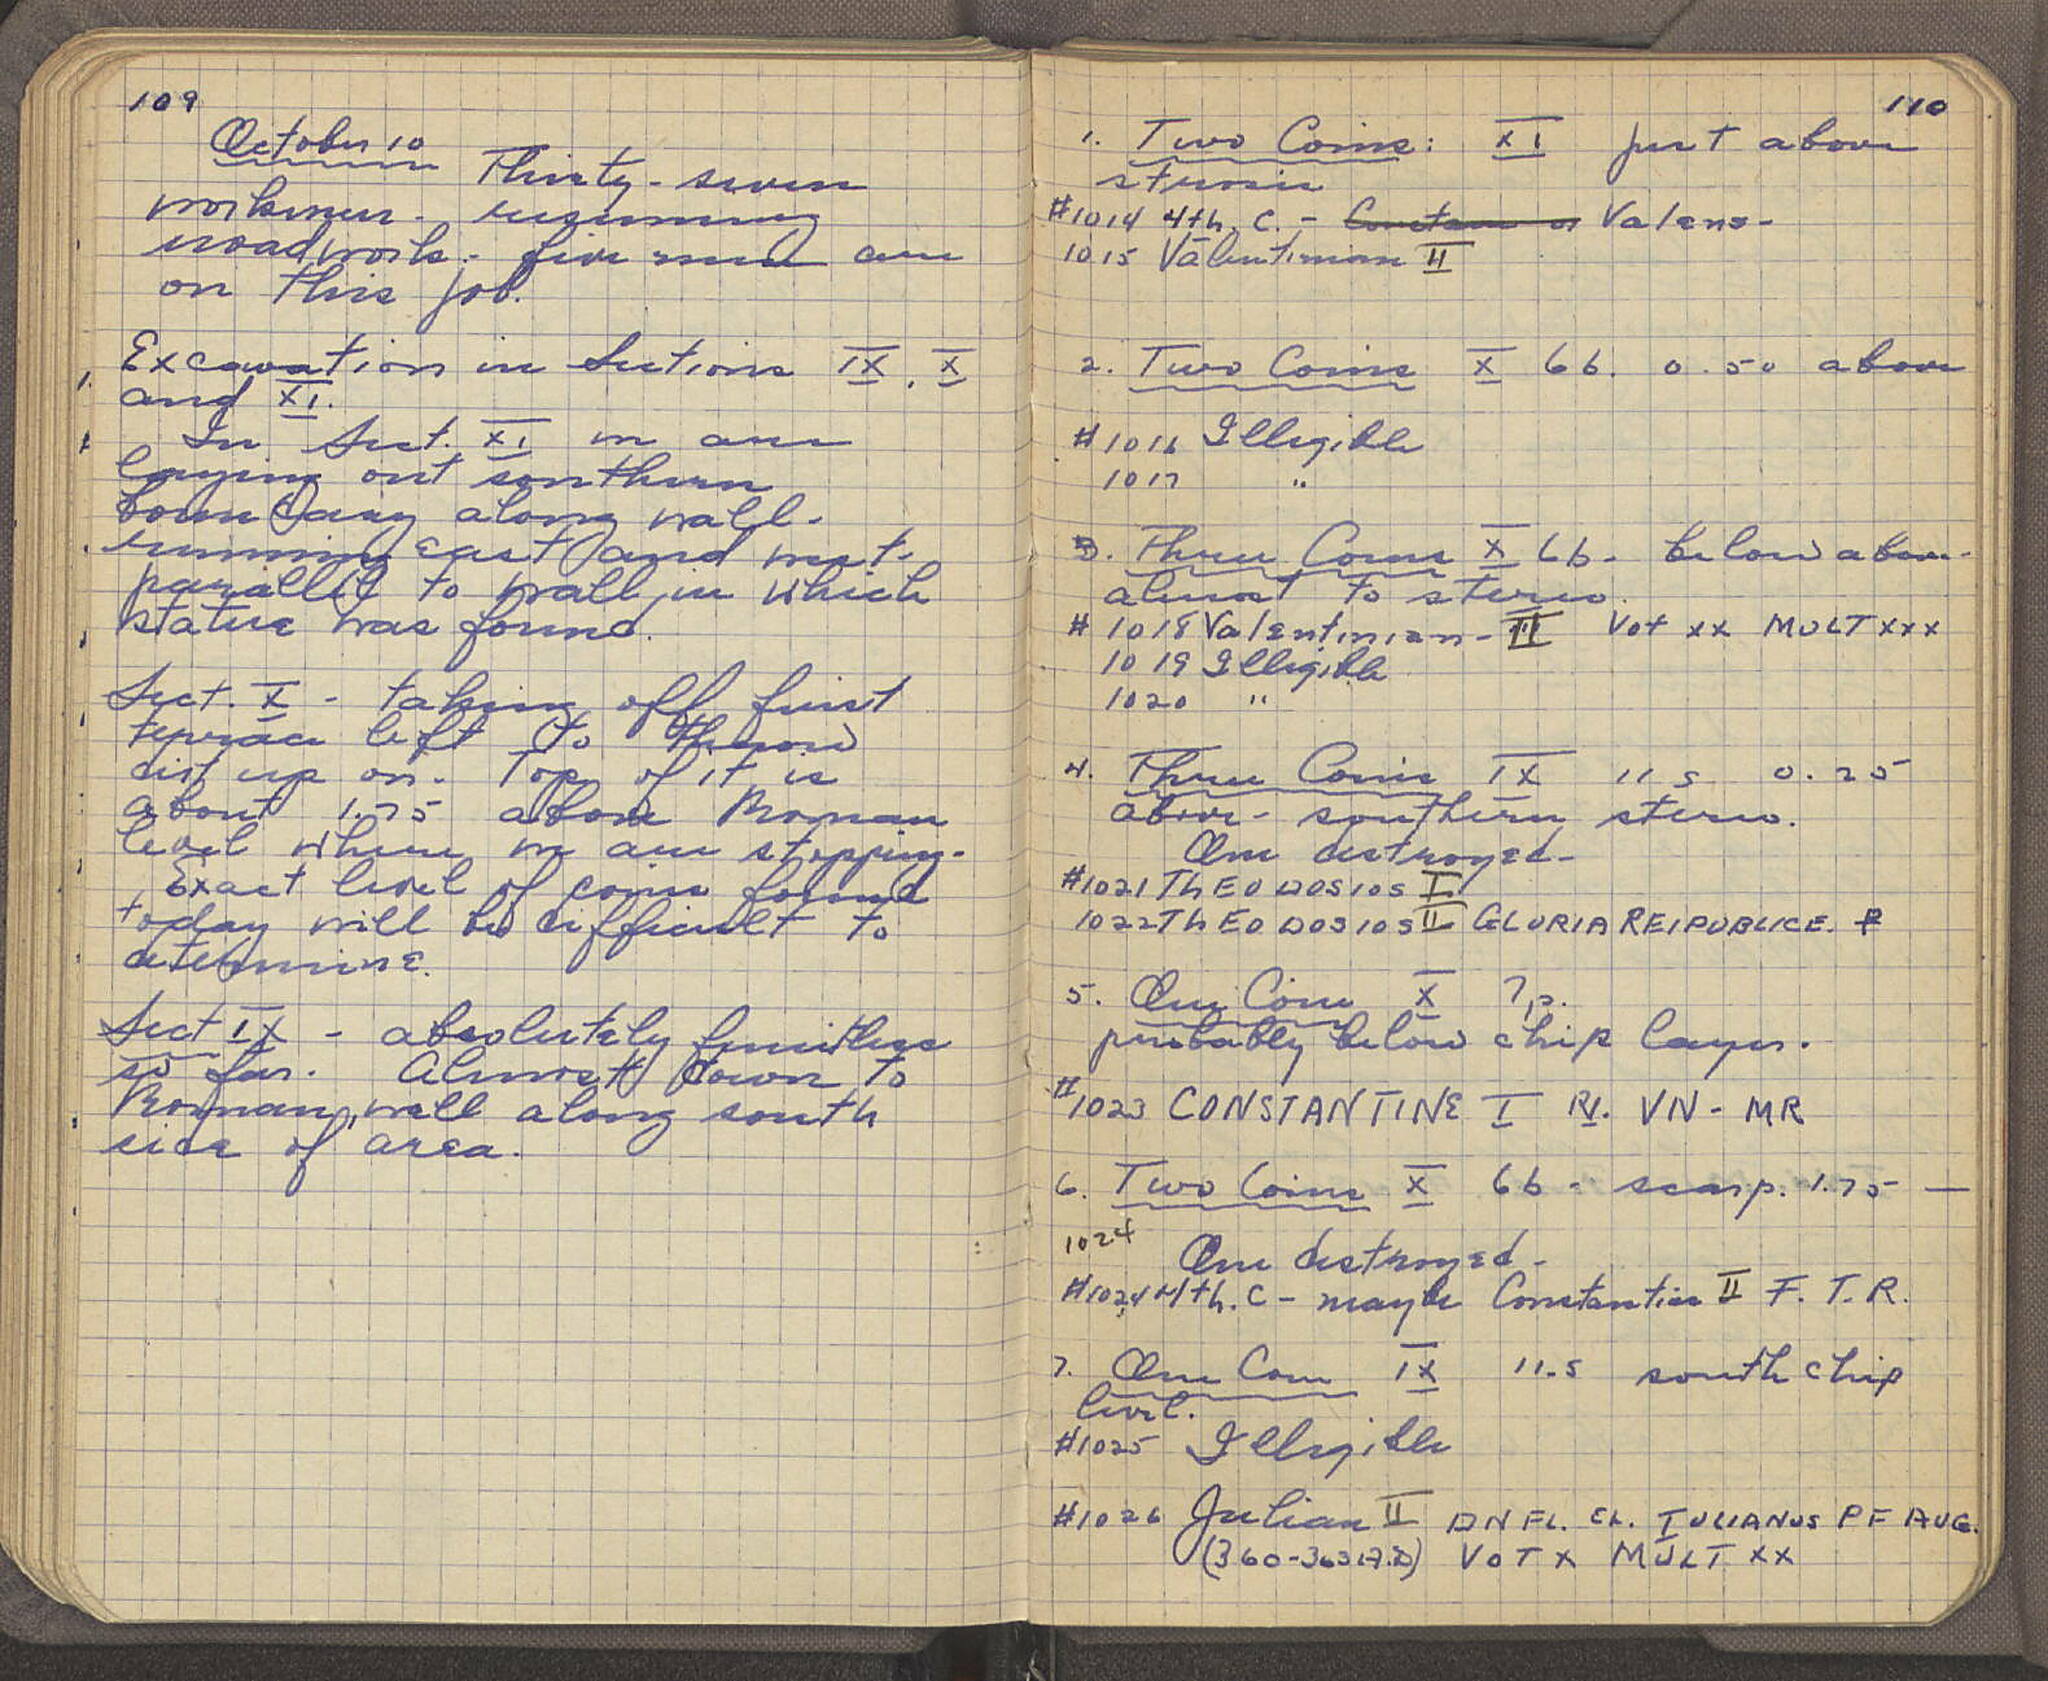 109
October 10
Thirty-seven
workmen - resuming
road work - five men are
on this job.
Excavation in Sections IX, X
and XI.
In Sect. XI we are
laying out southern
boundary along wall -
running east and west -
parallel to wall in which
statue was found.
Sect. X - taking off first
terrace left to throw
dirt up on. Top of it is
about 1.75 above Roman
level where we are stopping.
Exact level of coins found
today will be difficult to
determine.
Sect IX - absolutely fruitless
so far. Almost down to
Roman wall along south
side of area.
110
1. Two Coins: XI just above
#1014 4th. C. - Valens -
1015 Valentinian II
2. Two Coins X 6b. 0.50 above
#1016 Illegible
1017 "
3. Three Coins X 6b - below above -
almost to stereo.
#1018 Valentinian - III Vot xx MULT xxx
1019 Illegible
1020 "
4. Three Coins IX 11 s 0.25
above - southern stereo.
One destroyed -
#1021 ThEODOSIOS I
1022 ThEODOSIOS II GLORIA REIPUBLICE.
5. One Coin X ?p.
probably below chip layer.
#1023 CONSTANTINE I RV. VN - MR
6. Two Coins X 6b - scarp. 1.75 —
1024
One destroyed -
#1024 4th. C - maybe Constantius II F. T. R.
7. One Coin IX 11-s south chip
level.
#1025 Illegible
#1026 Julian II DN FL. CL. IULIANUS PF AUG.
(360-363 A.D) VOT X MULT XX